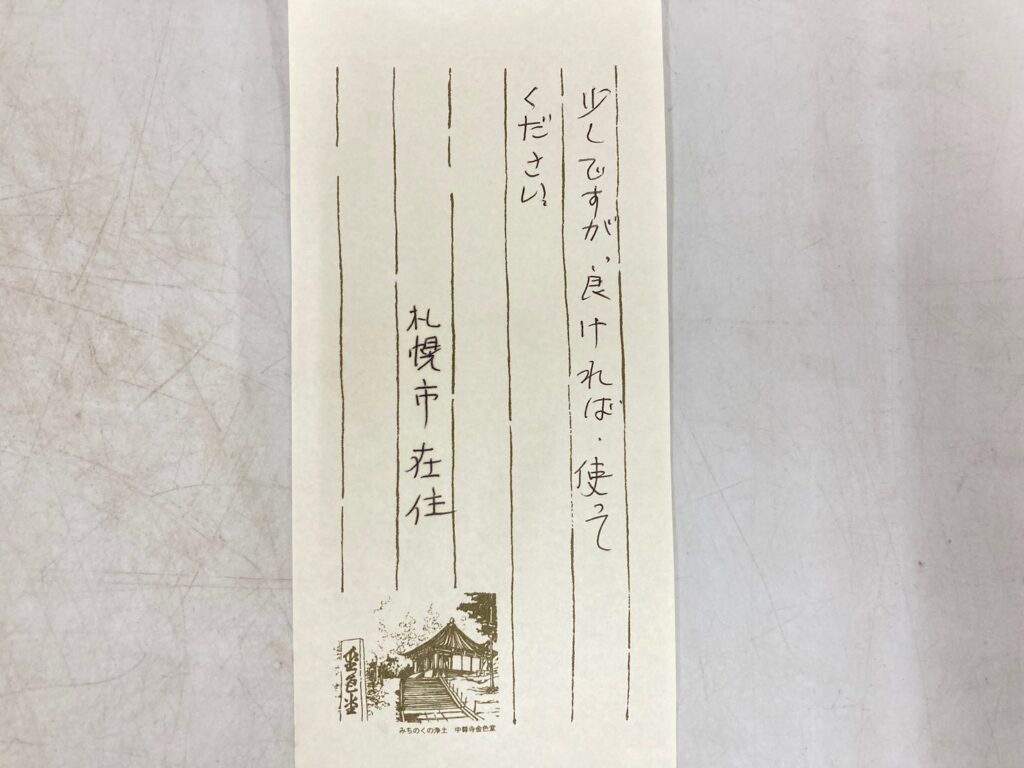 少しですが、良ければ・使って
ください。
札幌市在住
金色堂
みちのくの浄土 中尊寺金色堂